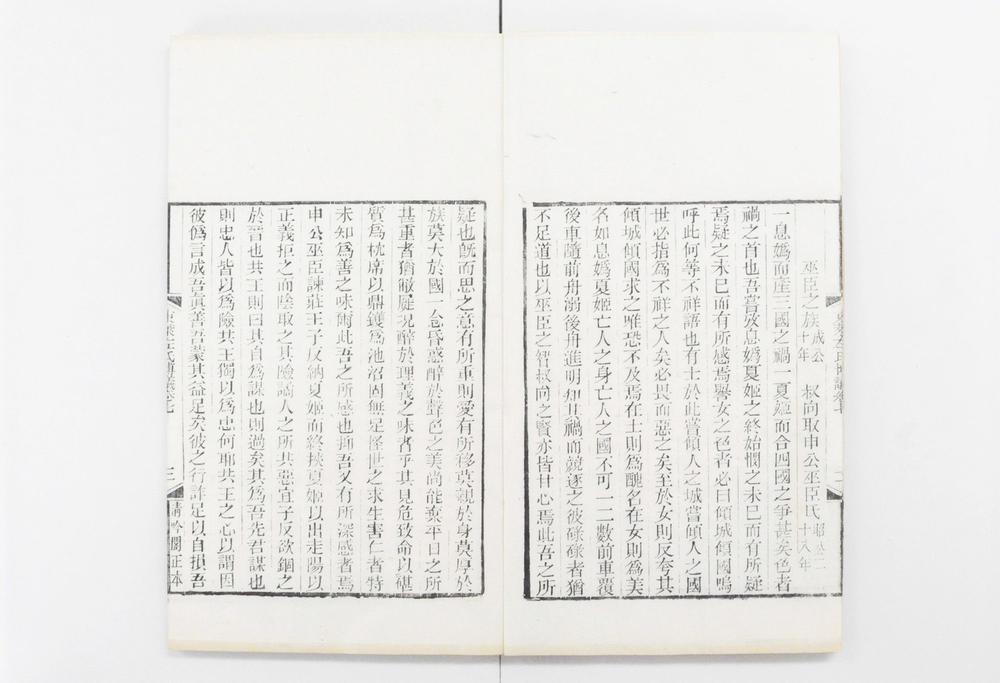 巫臣之族成公十年 叔向取申公巫臣氏昭公二十八年
一息嬀而產三國之禍一夏姬而合四國之爭甚矣色者
禍之首也吾嘗攷息嬀夏姬之終始憫之未已而有所疑
焉疑之未已而有所感焉譽女之色者必曰傾城傾國嗚
呼此何等不祥語也有士於此嘗傾人之城嘗傾人之國
世必指為不祥之人矣必畏而惡之矣至於女則反夸其
傾城傾國求之唯恐不及焉在士則爲醜名在女則爲美
名如息嬀夏姬亡人之身亡人之國不可一二數前車覆
後車隨前舟溺後舟進明知其禍而競逐之彼碌碌者猶
不足道也以巫臣之智叔向之賢亦皆甘心焉此吾之所
疑也旣而思之意有所重則愛有所移莫親於身莫厚於
族莫大於國一爲昏惑醉於聲色之美尚能棄平日之所
甚重者猶敝屣況醉於理義之味者乎其見危致命以碪
質爲枕席以鼎鑊爲池沼固無足怪世之求生害仁者特
未知爲善之味爾此吾之所感也抑吾又有所深感者焉
申公巫臣諫莊王子反納夏姬而終挾夏姬以出走陽以
正義拒之而陰取之其險譎人之所共惡宜子反欲錮之
於晉也共王則曰其自爲謀也則過矣其爲吾先君謀也
則忠人皆以爲險共王獨以爲忠何耶共王之心以謂因
彼僞言成吾眞善吾蒙其益足矣彼之行詐足以自損吾
三
請吟閣正本